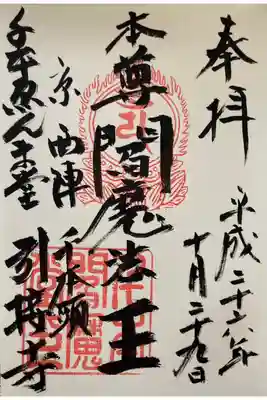 奉拝
平成二十六年
十月二十九日
本尊 閻魔法王
京 西陣 千本頭
千本ゑんま堂 引接寺